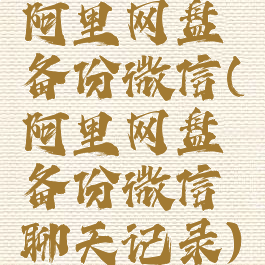 阿里网盘
备份微信(
阿里网盘
备份微信
聊天记录)